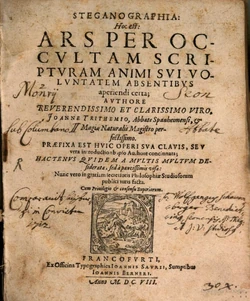 STEGANOGRAPHIA:
Hoc est:
ARS PER OC-
CVLTAM SCRI-
PTVRAM ANIMI SVI VO-
LVNTATEM ABSENTIBVS
aperiendi certa;
AVTHORE
REVERENDISSIMO ET CLARISSIMO VIRO,
JOANNE TRITHEMIO, Abbate Spanheimensi, &
Magiæ Naturalis Magistro perfectissimo.
PRÆFIXA EST HVIC OPERI SVA CLAVIS, SEV
vera introductio ab ipso Authore concinnata;
HACTENVS QVIDEM A MVLTIS MVLTVM DE-
siderata, sed à paucissimis visa:
Nunc vero in gratiam secretioris Philosophiæ Studiosorum
publici iuris facta.
Cum Privilegio & consensu Superiorum.
FRANCOFVRTI,
Ex Officina Typographica IOANNIS SAVRII, Sumptibus
IOANNIS BERNERI.
ANNO M. DC. VIII.